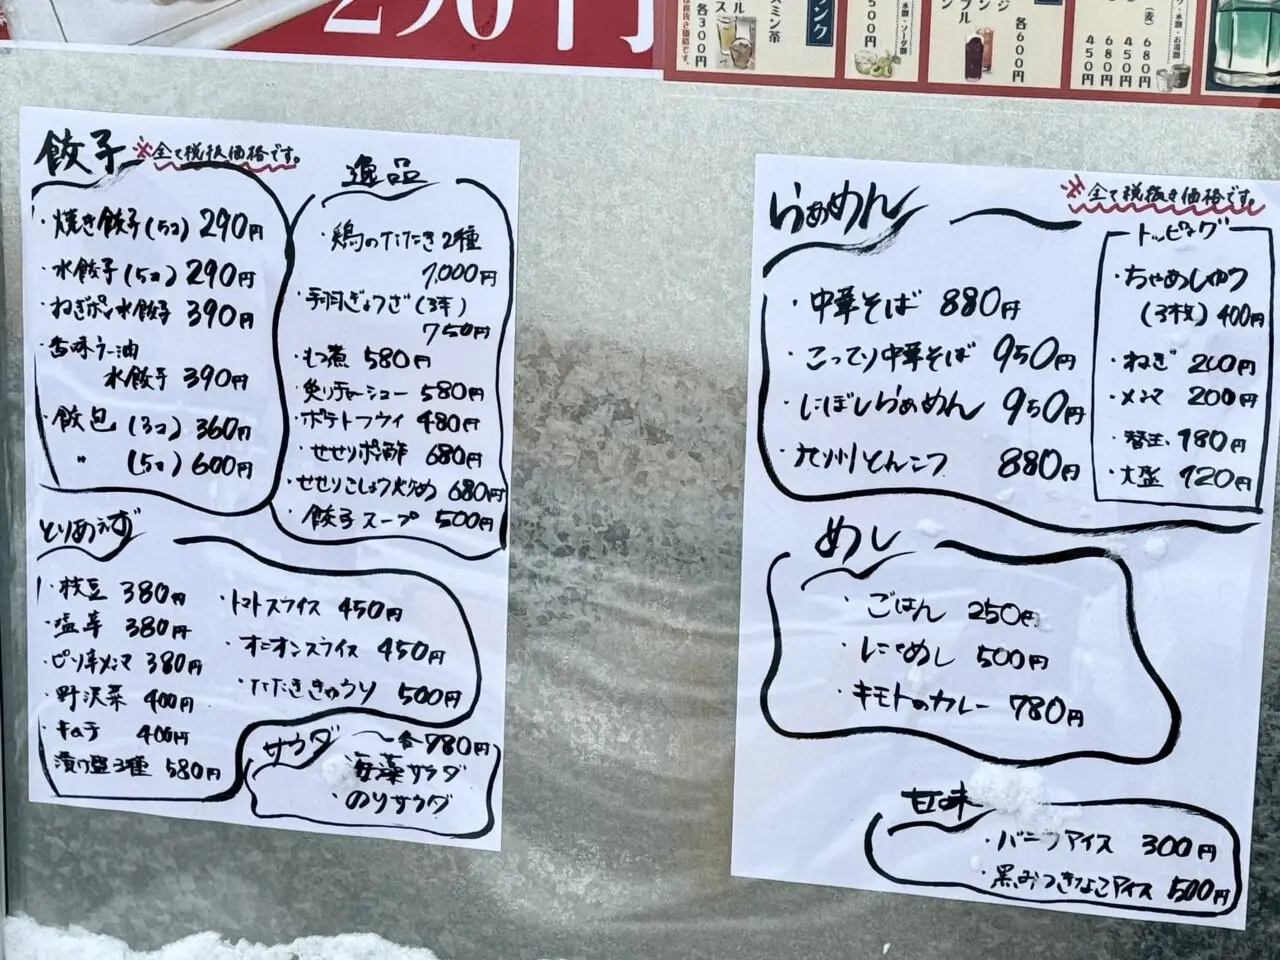 290円
各300円
ドリンク
500円
各600円
450円
680円
450円
680円
餃子 ※全て税抜価格です。
・焼き餃子(5コ) 290円
・水餃子(5コ) 290円
・ねぎポン水餃子 390円
・香味ラー油
水餃子 390円
・餃包 (3コ) 360円
〃 (5コ) 600円
逸品
・鶏のたたき2種
1,000円
・手羽ぎょうざ(3本)
750円
・もつ煮 580円
・炙りチャーシュー 580円
・ポテトフライ 480円
・せせりポン酢 680円
・せせりこしょう炒め 680円
・餃子スープ 500円
とりあえず
・枝豆 380円
・塩辛 380円
・ピリ辛メンマ 380円
・野沢菜 400円
・キムチ 400円
漬け盛3種 580円
・トマトスライス 450円
・オニオンスライス 450円
・たたききゅうり 500円
サラダ 各780円
・海藻サラダ
・のりサラダ
らぁめん
※全て税抜き価格です。
・中華そば 880円
・こってり中華そば 950円
・にぼしらぁめん 950円
・九州とんこつ 880円
トッピング
・ちゃあしゅう
(3枚) 400円
・ねぎ 200円
・メンマ 200円
・替玉 180円
・大盛 120円
めし
・ごはん 250円
・にくめし 500円
・キモトのカレー 780円
甘味
・バニラアイス 300円
・黒みつきなこアイス 500円